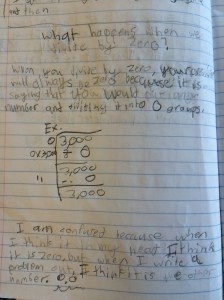 then
What happens when we
divide by zero?
When you divide by zero, your
will always be zero because it is
saying that you would take a
number and dividing it into 0 groups.
Ex.
0 3,000
over - 0
3,000
" - 0
3,000
I am confused because when
I think it in my head I think
it is zero, but when I write a
problem out I think it is the other
number.